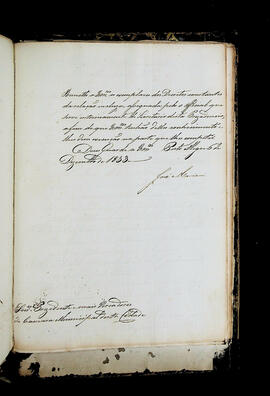 Remetto a Vm.es os exemplares dos Decretos constantes
da relação incluza, assignada pelo official que
serve interinamente de Secretario desta Presidencia,
a fim de que Vm.es tenhão delles conhecimento e
lhes dem execução na parte que lhes competir.
Deos Guarde a Vm.es Porto Alegre 5 de
Dezembro de 1833.
José
Snr.es Prezidente e mais Vereadores
da Camara Municipal desta Cidade